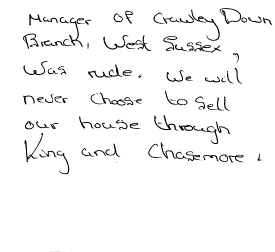 Manager of Crawley Down
Branch, West Sussex,
Was rude. We will
never choose to sell
our house through
King and Chasemore.